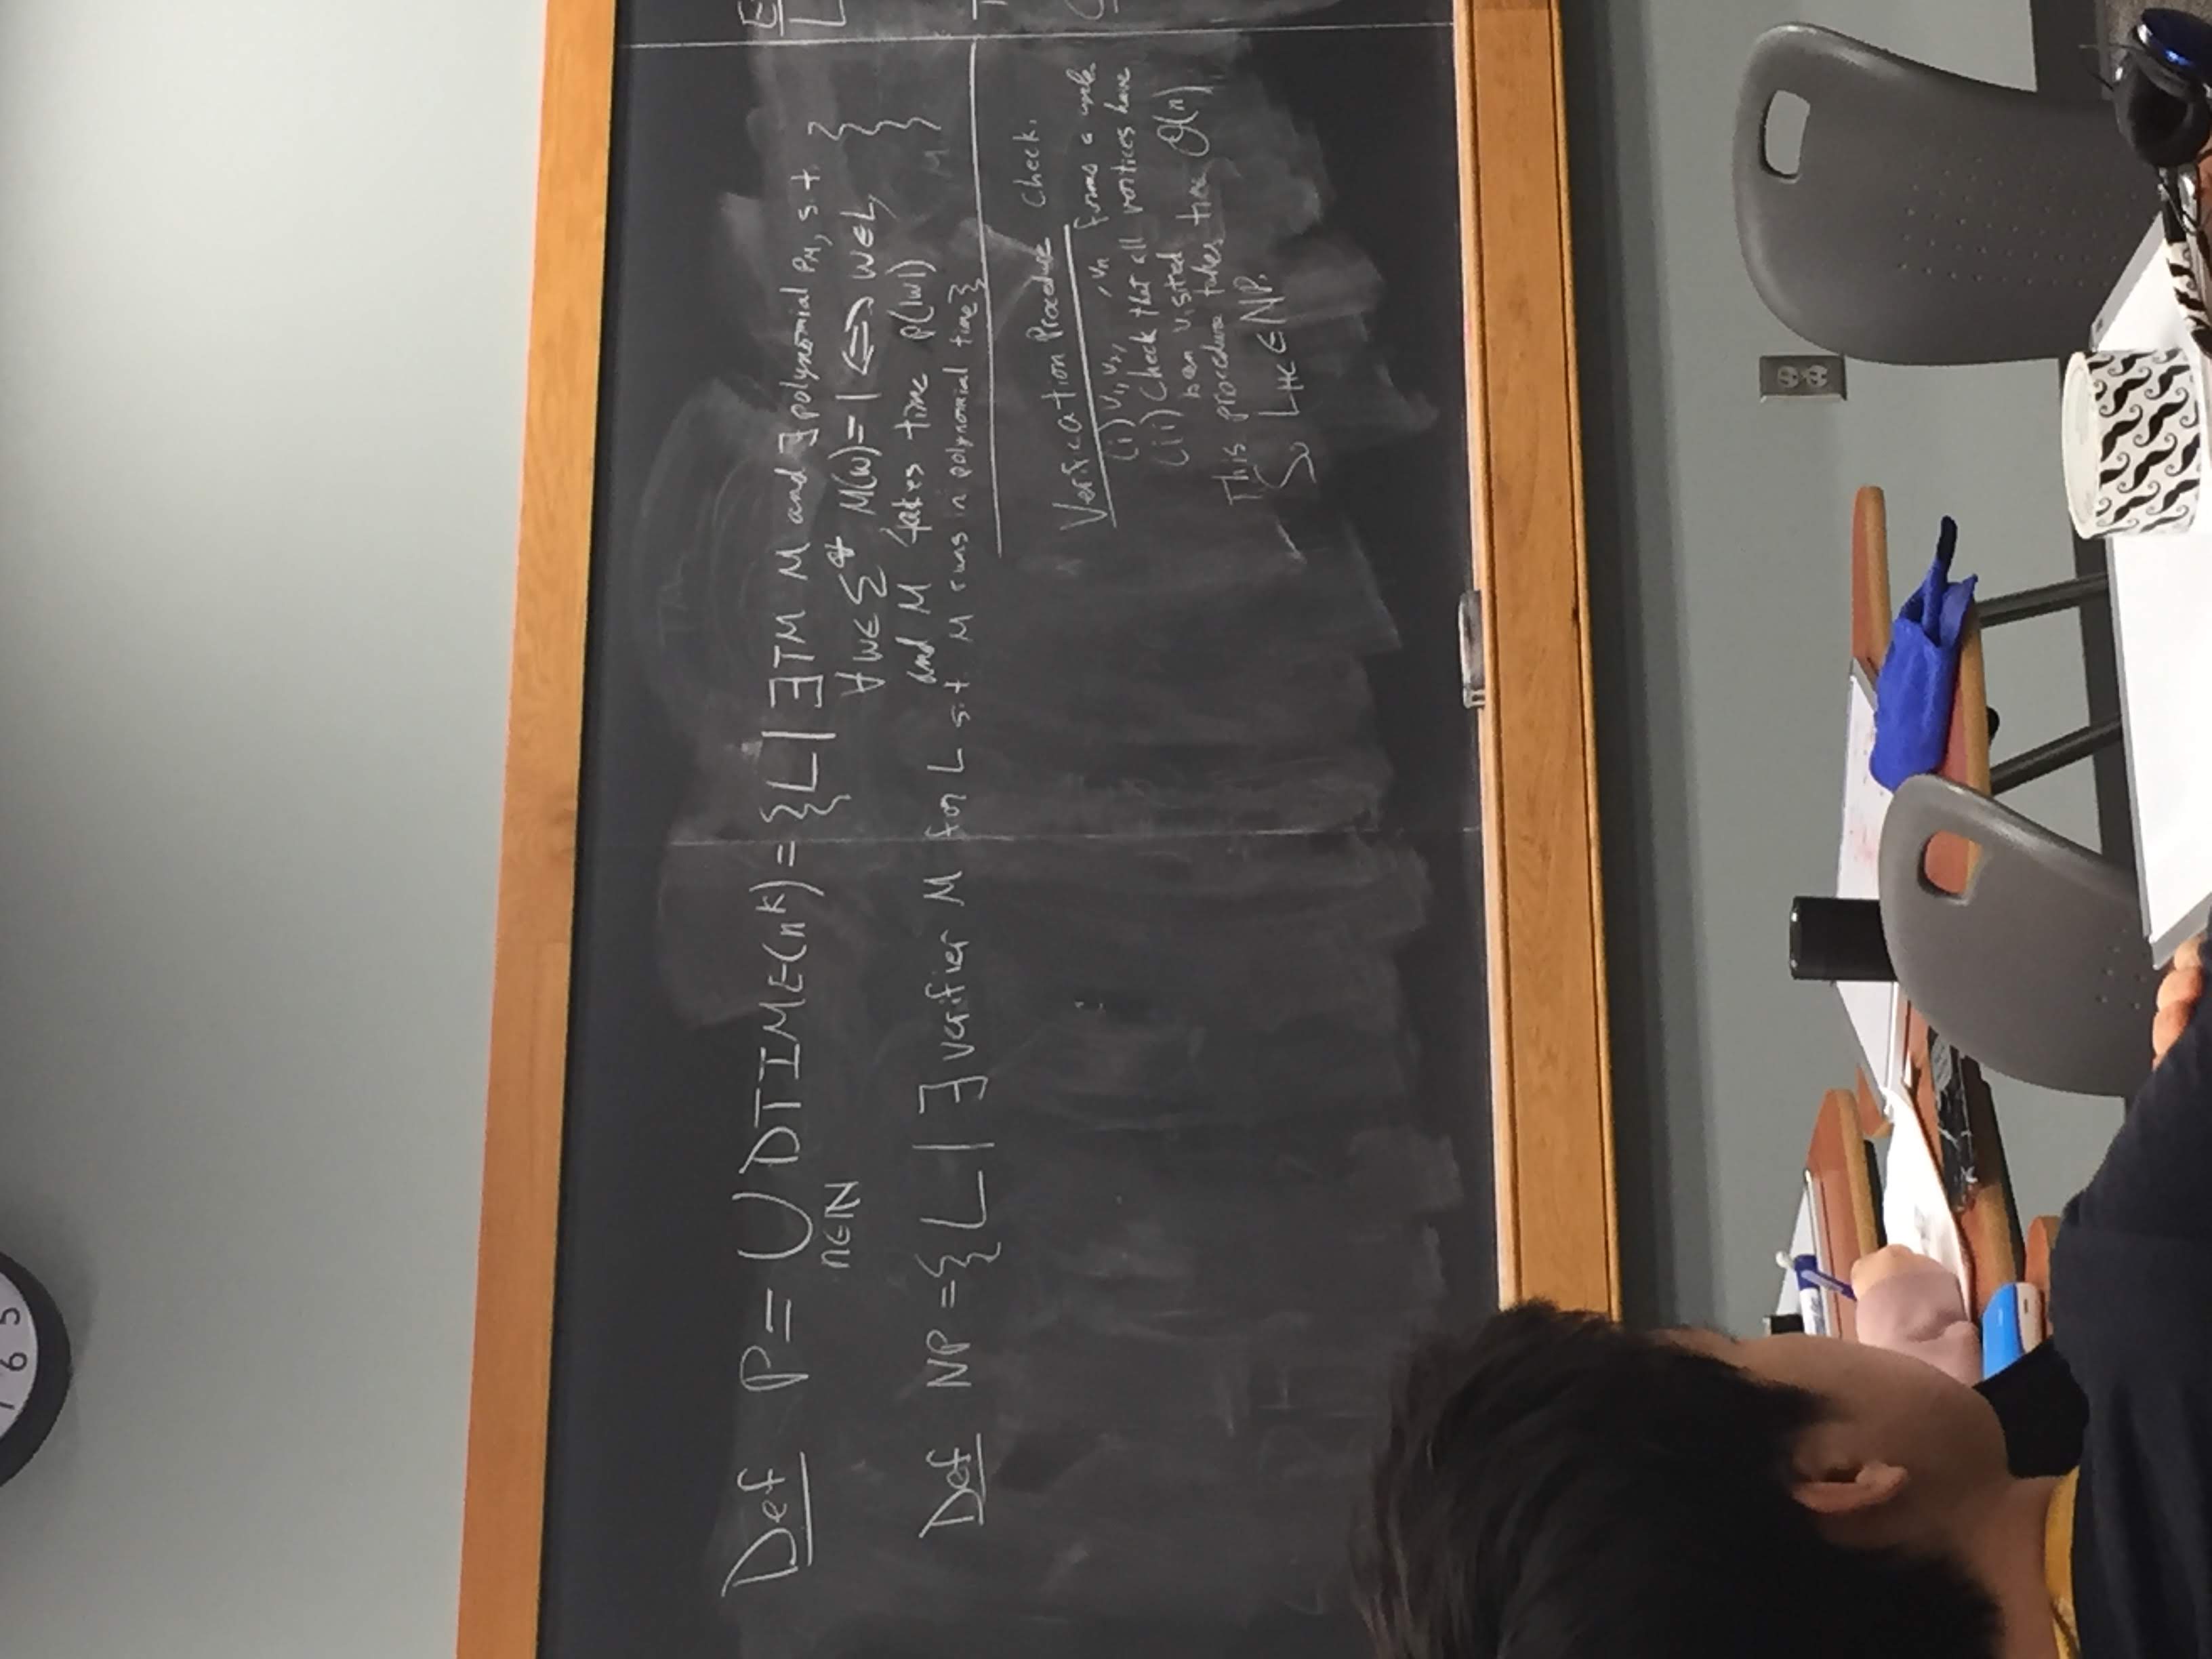 7 6 5
Def P = ⋃ DTIME(n^k) = {L | ∃ TM M and ∃ polynomial p_M, s.t.
n∈ℕ
∀ w∈ Σ*, M(w)=1 ⟺ w∈L,
and M takes time p(|w|) }
Def NP = {L | ∃ verifier M for L s.t. M runs in polynomial time}
Verification Procedure Check.
(i) v₁, v₂, , vₙ forms a cycle
(ii) Check that all vertices have
been visited
This procedure takes time O(n)
So L_HC ∈ NP.